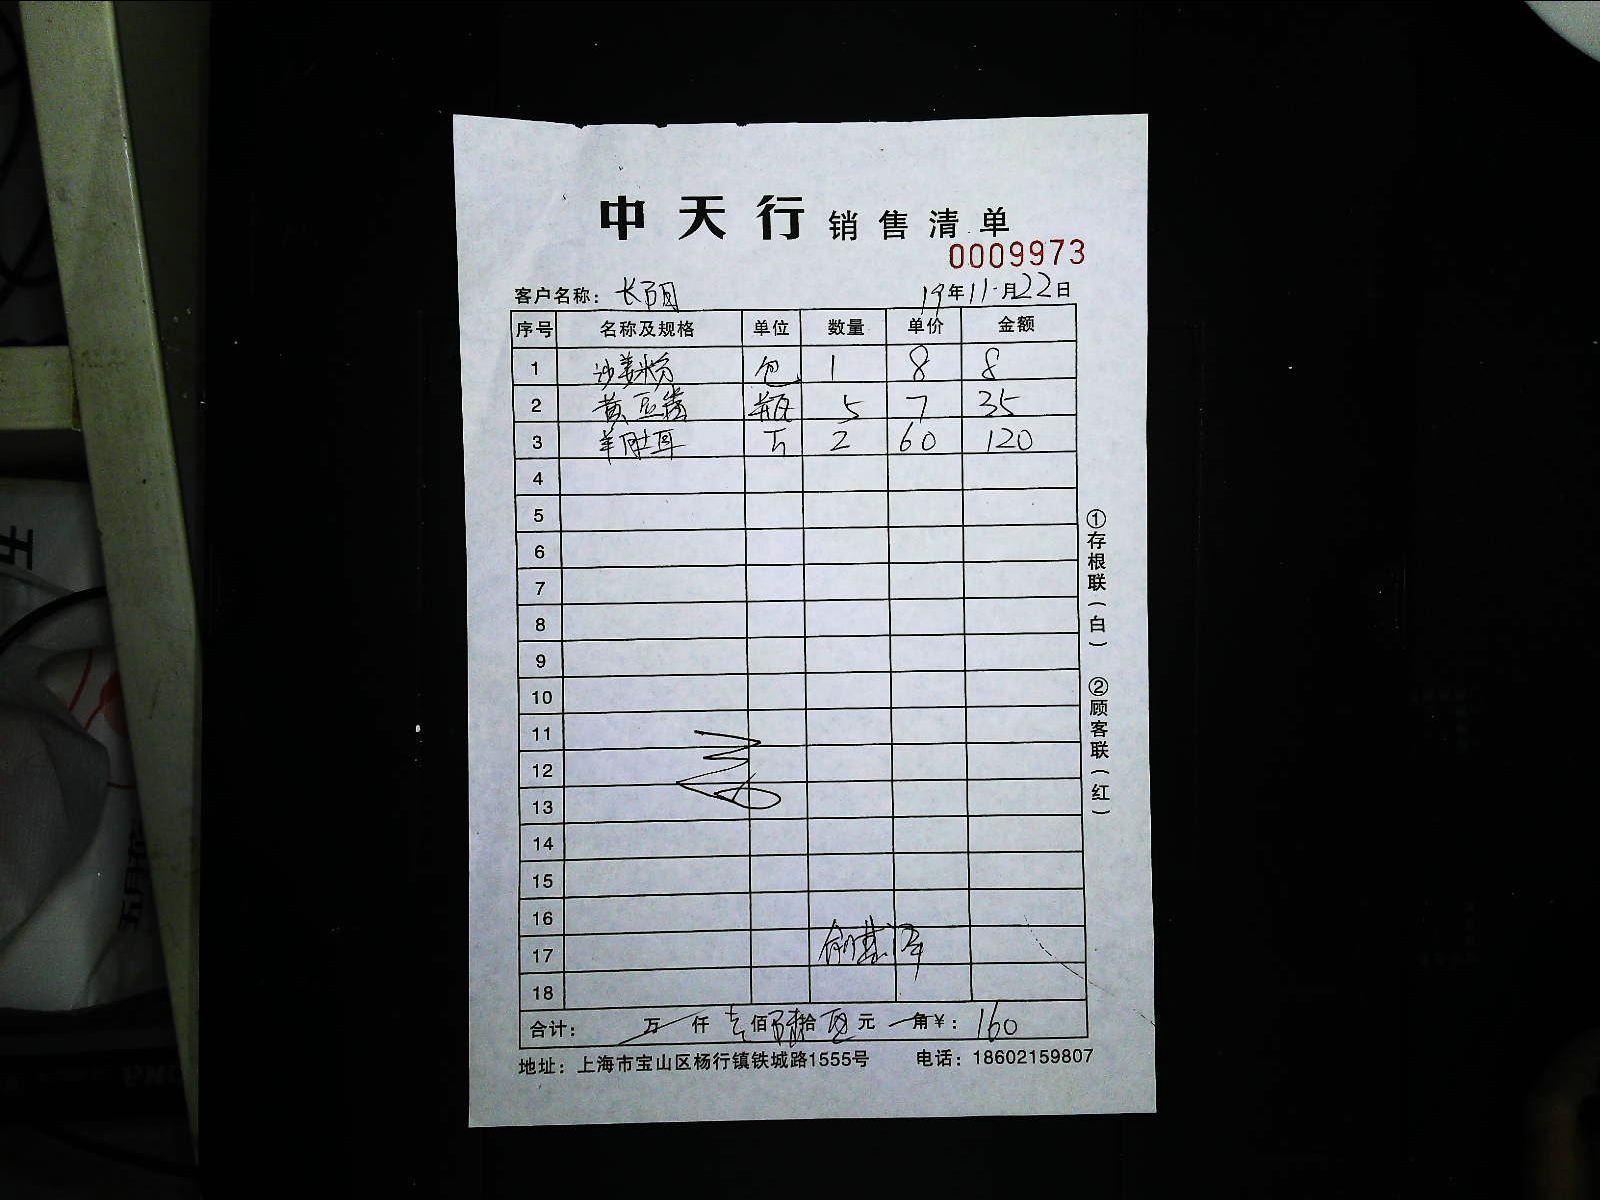 中天行 销售清单
0009973
客户名称： 长阳 19年11月22日
序号 名称及规格 单位 数量 单价 金额
1 沙姜粉 包 1 8 8
2 黄豆酱 瓶 5 7 35
3 羊肚耳 斤 2 60 120
4
5
6
7
8
9
10
11
12
13
14
15
16
17
18
合计： 万 仟 壹佰 陆拾 元 角 ¥：160
地址：上海市宝山区杨行镇铁城路1555号 电话：18602159807
①存根联（白）
②顾客联（红）
五